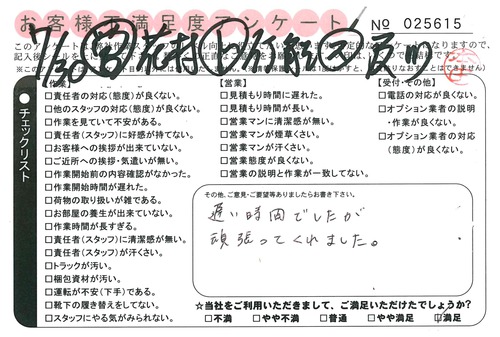 お客様不満足度アンケート
№ 025615
チェックリスト
【作業】
□責任者の対応(態度)が良くない。
□他のスタッフの対応(態度)が良くない。
□作業を見ていて不安がある。
□責任者(スタッフ)に好感が持てない。
□お客様への挨拶が出来ていない。
□ご近所への挨拶・気遣いが無い。
□作業開始前の内容確認がなかった。
□作業開始時間が遅れた。
□荷物の取り扱いが雑である。
□お部屋の養生が出来ていない。
□作業時間が長すぎる。
□責任者(スタッフ)に清潔感が無い。
□責任者(スタッフ)が汗くさい。
□トラックが汚い。
□梱包資材が汚い。
□運転が不安(下手)である。
□靴下の履き替えをしてない。
□スタッフにやる気がみられない。
【営業】
□見積もり時間に遅れた。
□見積もり時間が長い。
□営業マンに清潔感が無い。
□営業マンが煙草くさい。
□営業マンが汗くさい。
□営業態度が良くない。
□営業の説明と作業が一致してない。
【受付・その他】
□電話の対応が良くない。
□オプション業者の説明
・作業が良くない。
□オプション業者の対応
(態度)が良くない。
その他、ご意見・ご要望等ありましたらお書き下さい。
遅い時間でしたが
頑張ってくれました。
☆当社をご利用いただきまして、ご満足いただけたでしょうか?
□不満 □やや不満 □普通 □やや満足 □満足